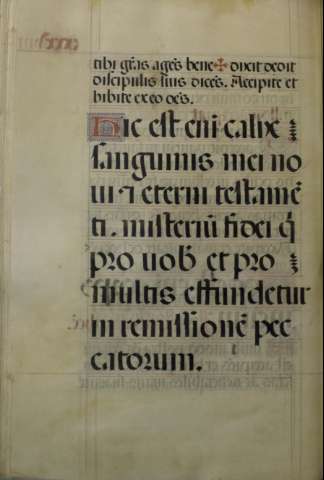 tibi gr̃as ag̃es bene✠dixit dedit
discipulis suis dices̃. Accipite et
bibite ex eo oes̃.
Hic est eni calix
sanguinis mei no
ui ⁊ eterni testamẽ
ti. misteriũ fidei q̃
pro uob̃ et pro
multis effundetur
in remissionẽ pec
catorum.